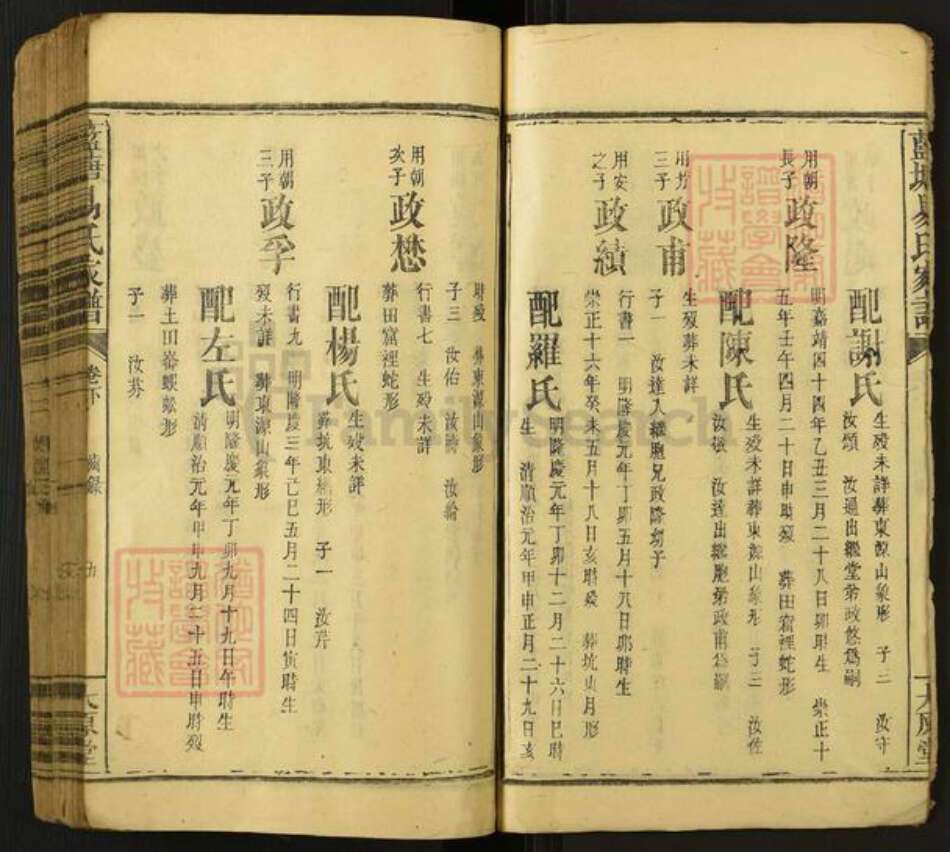 配謝氏
生歿未詳葬東源山象形 子三 汝守
汝頌 汝通出繼堂弟政悠爲嗣
用朝長子 政隆
明嘉靖四十四年乙丑三月二十八日卯時生 崇正十
五年壬午四月二十日申時歿 葬田窩裡蛇形
配陳氏
生歿未詳葬東源山象形 子三 汝佐
汝 汝達出繼胞弟政甫爲嗣
三子 政甫
生歿葬未詳
子一 汝達入繼胞兄政隆幼子
用安之子 政績
行書一 明隆慶元年丁卯五月十八日卯時生
崇正十六年癸未五月十八日亥時歿 葬坑山月形
配羅氏
明隆慶元年丁卯十二月二十六日巳時
生 清順治元年甲申正月二十九日亥
時歿 葬東源山象形
子三 汝佑 汝 汝
用朝次子 政懋
行書七 生歿未詳
葬田窩裡蛇形
配楊氏
生歿未詳
葬坑東 形 子一 汝芹
用朝三子 政孚
行書九 明隆慶三年己巳五月二十四日寅時生
歿未詳 葬東源山象形
配左氏
明隆慶元年丁卯九月十九日午時生
清順治元年甲申九月二十五日申時歿
葬土田 蜈蚣形
子一 汝芬
藍塘易氏家譜
卷下
太原堂
FamilySearch
譜學會
收藏